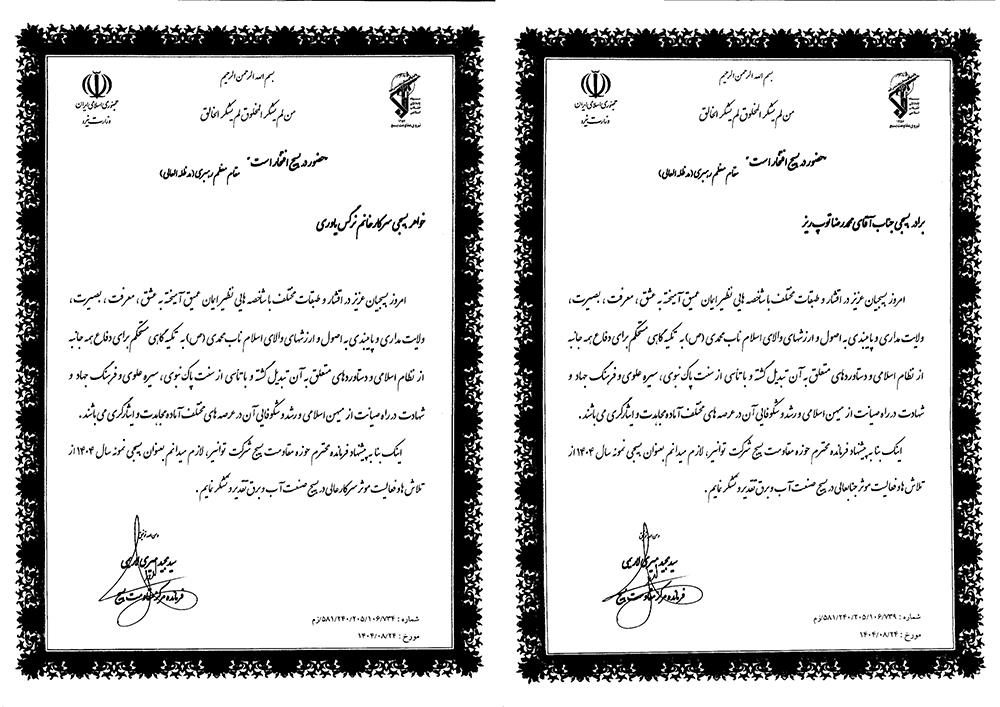 بسم الله الرحمن الرحیم
من لم یشکر المخلوق لم یشکر الخالق
جمهوری اسلامی ایران
وزارت نیرو
نیروی مقاومت بسیج
"حضور در بسیج افتخار است"
مقام معظم رهبری (مدظله العالی)
خواهر بسیجی سرکار خانم نرگس یاوری
امروز بسیجیان عزیز در اقشار و طبقات مختلف با شاخصه هایی نظیر ایمان عمیق آمیخته به عشق ، معرفت ، بصیرت ،
ولایت مداری و پایبندی به اصول و ارزشهای والای اسلام ناب محمدی (ص) به تکیه گاهی مستحکم برای دفاع همه جانبه
از نظام اسلامی و دستاوردهای متعلق به آن تبدیل گشته و با تاسی از سنت پاک نبوی ، سیره علوی و فرهنگ جهاد و
شهادت در راه صیانت از میهن اسلامی و رشد و شکوفایی آن در عرصه های مختلف آماده مجاهدت و ایثارگری می باشند .
اینک بنا به پیشنهاد فرمانده محترم حوزه مقاومت بسیج شرکت توانیر، لازم میدانم بعنوان بسیجی نمونه سال ۱۴۰۴ از
تلاش ها و فعالیت موثر سرکارعالی در بسیج صنعت آب و برق تقدیر و تشکر نمایم .
سید مجید
فرمانده مرکز مقاومت بسیج
شماره : ۵۸۱/۲۴۰/۲۰۵/۱۰۶/۷۳۴/زم
مورخ : ۱۴۰۴/۰۸/۲۴
بسم الله الرحمن الرحیم
من لم یشکر المخلوق لم یشکر الخالق
جمهوری اسلامی ایران
وزارت نیرو
نیروی مقاومت بسیج
"حضور در بسیج افتخار است"
مقام معظم رهبری (مدظله العالی)
برادر بسیجی جناب آقای محمدرضا توپ ریز
امروز بسیجیان عزیز در اقشار و طبقات مختلف با شاخصه هایی نظیر ایمان عمیق آمیخته به عشق ، معرفت ، بصیرت ،
ولایت مداری و پایبندی به اصول و ارزشهای والای اسلام ناب محمدی (ص) به تکیه گاهی مستحکم برای دفاع همه جانبه
از نظام اسلامی و دستاوردهای متعلق به آن تبدیل گشته و با تاسی از سنت پاک نبوی ، سیره علوی و فرهنگ جهاد و
شهادت در راه صیانت از میهن اسلامی و رشد و شکوفایی آن در عرصه های مختلف آماده مجاهدت و ایثارگری می باشند .
اینک بنا به پیشنهاد فرمانده محترم حوزه مقاومت بسیج شرکت توانیر، لازم میدانم بعنوان بسیجی نمونه سال ۱۴۰۴ از
تلاش ها و فعالیت موثر جنابعالی در بسیج صنعت آب و برق تقدیر و تشکر نمایم .
سید مجید
فرمانده مرکز مقاومت بسیج
شماره : ۵۸۱/۲۴۰/۲۰۵/۱۰۶/۷۳۹/زم
مورخ : ۱۴۰۴/۰۸/۲۴